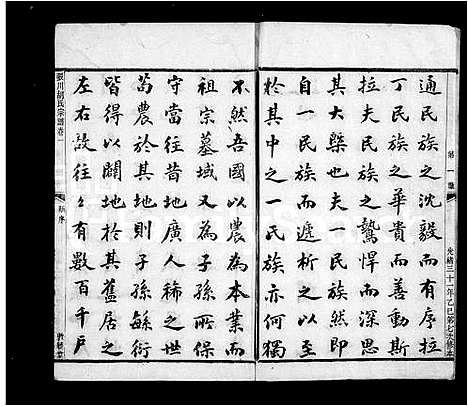 第一冊
光緒三十一年乙巳第七次修本
通民族之沈毅而有序拉
丁民族之華貴而善動斯
拉夫民族之鷙悍而深思
其大槩也夫一民族然即
自一民族而遞析之以至
於其中之一民族亦何獨
不然吾國以農為本業而
祖宗墓域又為子孫所保
守當往昔地廣人稀之世
苟農於其地則子孫緐衍
皆得以闢地於其舊居之
左右故往々有數百千戶
張川胡氏宗譜卷一
新序
敦睦堂